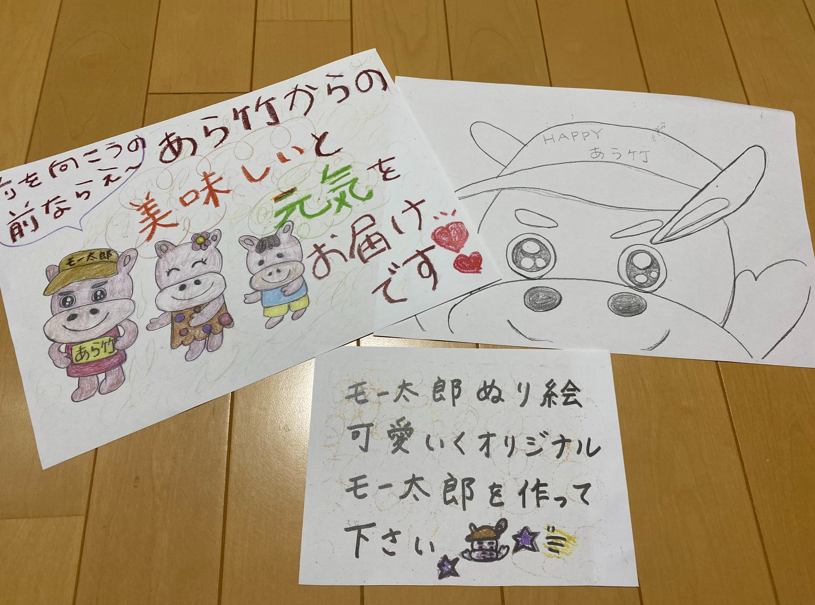 を向こうの
前ならえ〜
あら竹からの
美味しいと
元気を
お届け
です
モー太郎
あら竹
HAPPY
あら竹
モー太郎ぬり絵
可愛いくオリジナル
モー太郎を作って
下さい